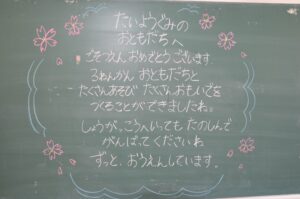 たいようぐみの
おともだちへ
ごそつえんおめでとうございます
3ねんかん おともだちと
たくさんあそび たくさんおもいでを
つくることができましたね。
しょうがっこうへいっても たのしんで
がんばってくださいね
ずっと、おうえんしています。